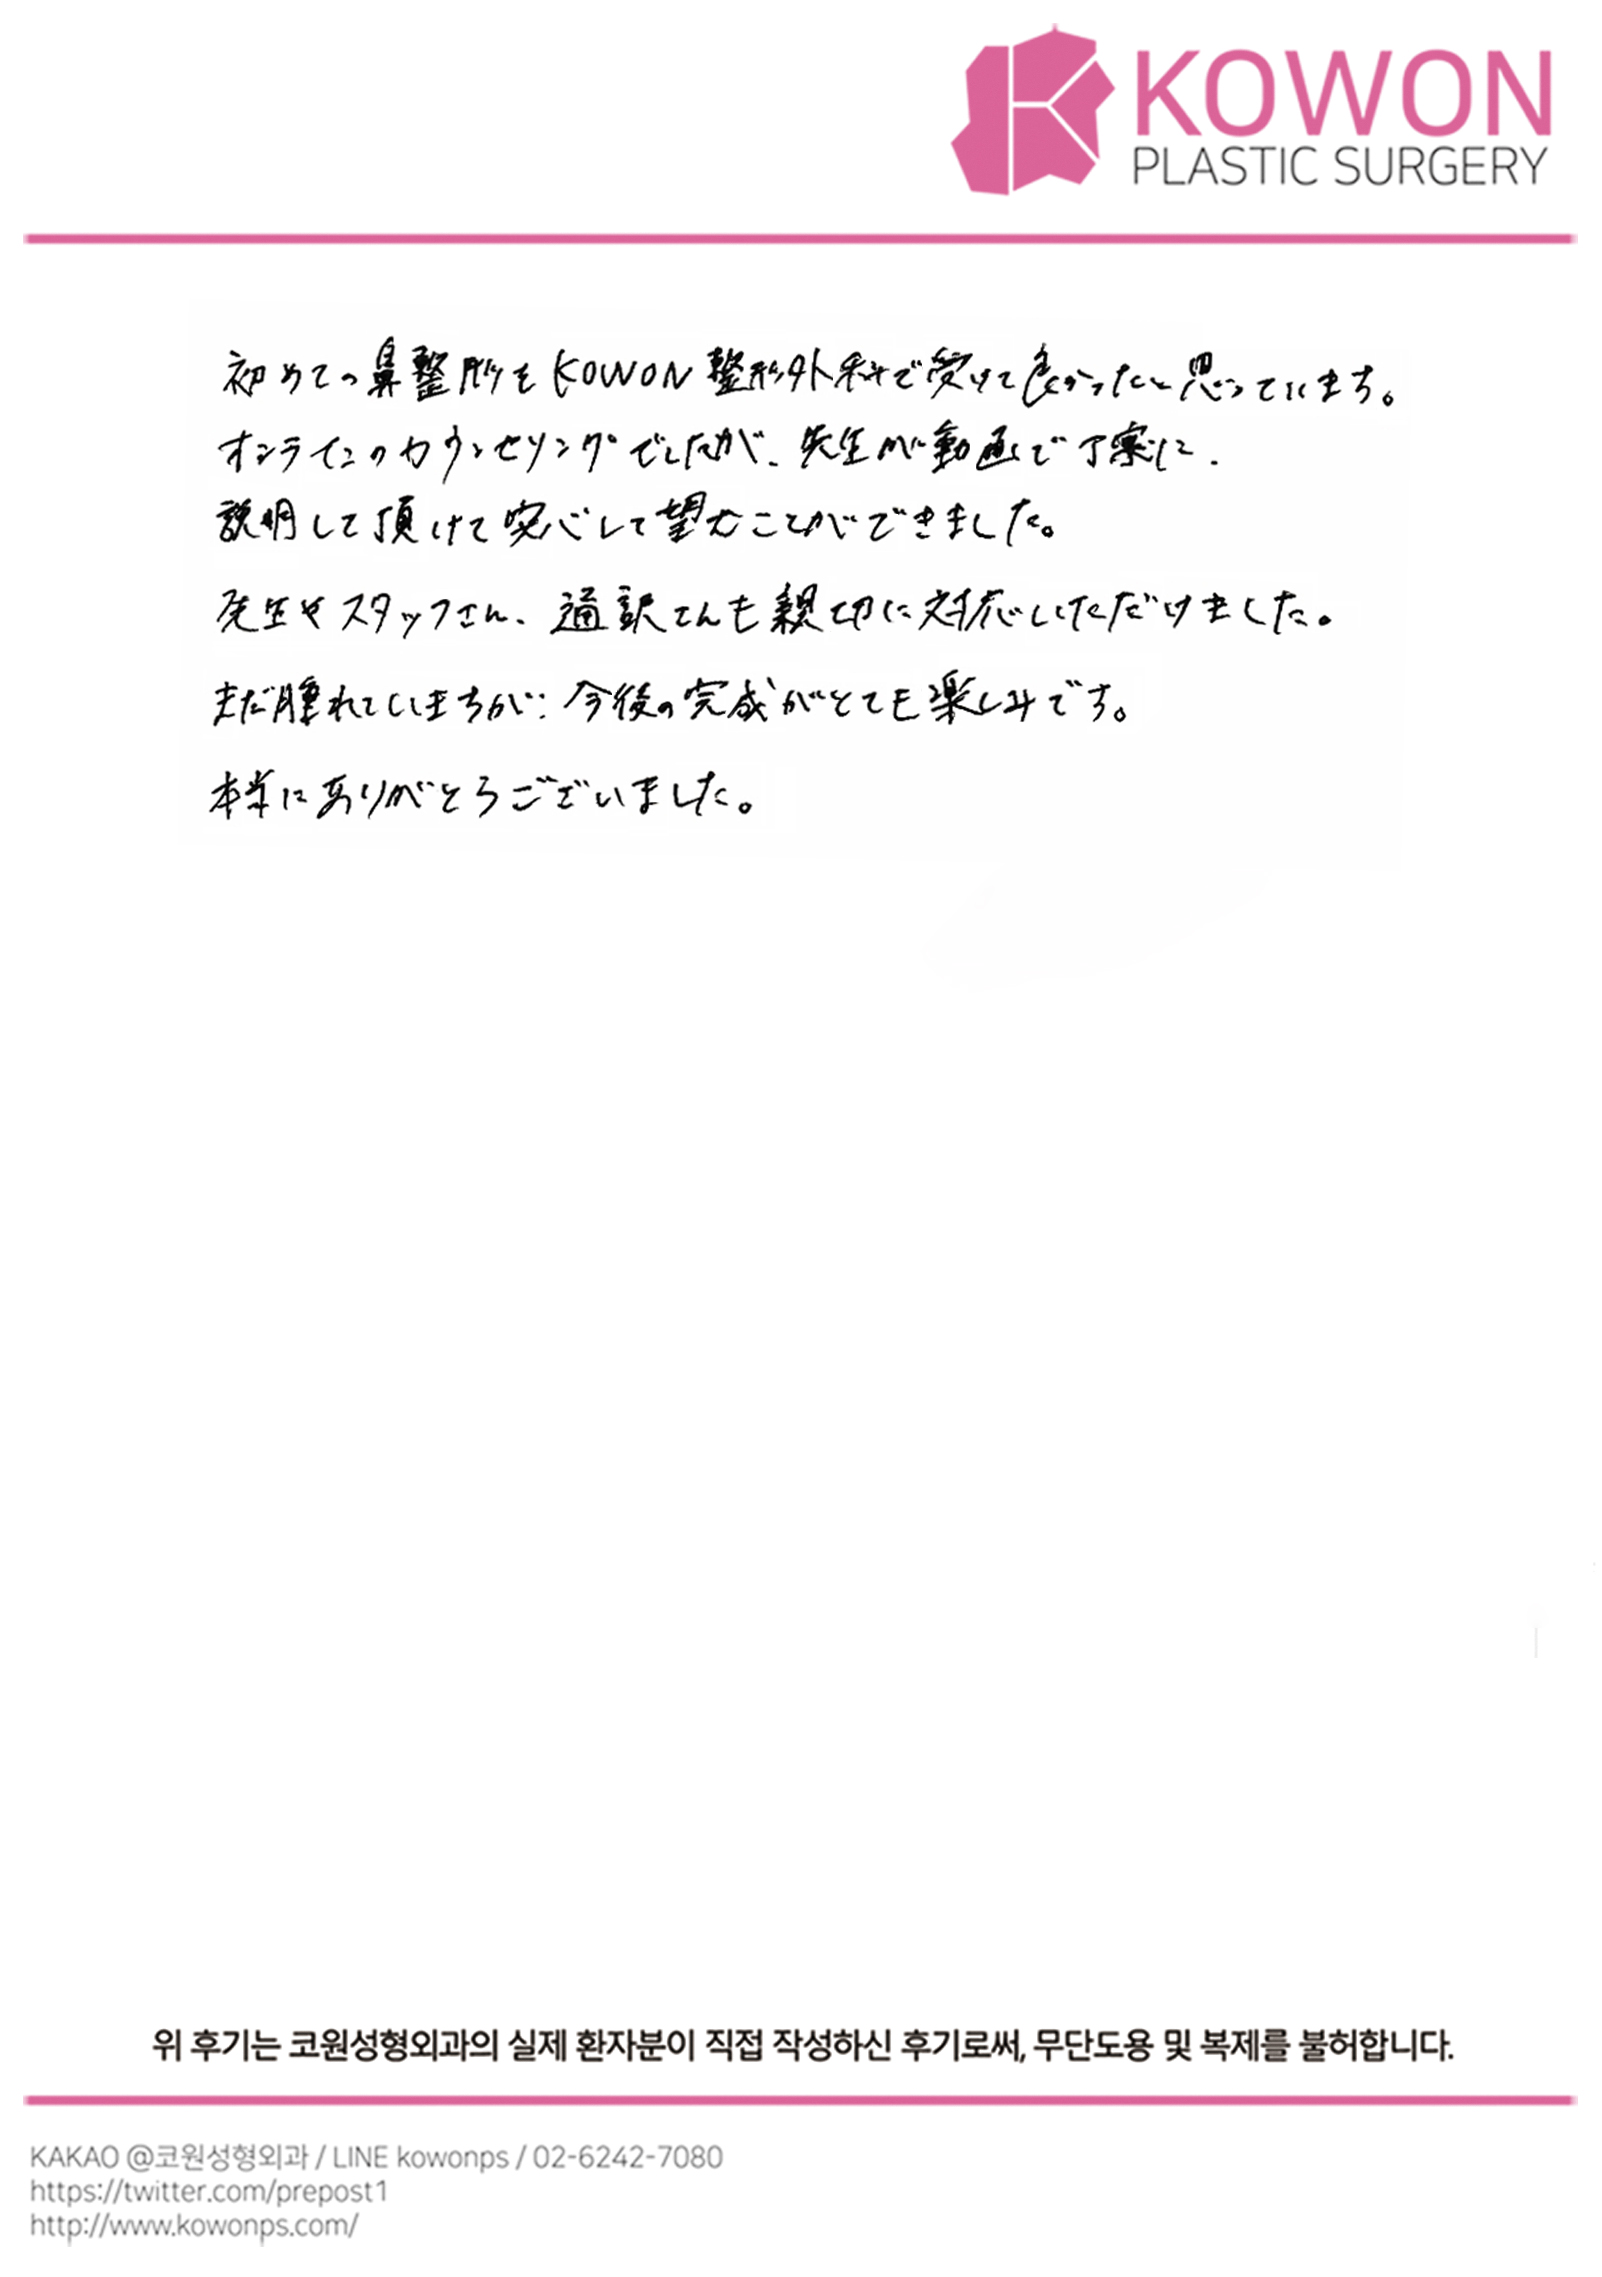 KOWON
PLASTIC SURGERY
初めての鼻整形をKOWON整形外科で受けて良かったと思っています。
オンラインのカウンセリングでしたが、先生が動画で丁寧に、
説明して頂けて安心して望むことができました。
先生やスタッフさん、通訳さんも親切に対応していただけました。
まだ腫れていますが、今後の完成がとても楽しみです。
本当にありがとうございました。
위 후기는 코원성형외과의 실제 환자분이 직접 작성하신 후기로써, 무단도용 및 복제를 불허합니다.
KAKAO @코원성형외과 / LINE kowonps / 02-6242-7080
https://twitter.com/prepost1
http://www.kowonps.com/